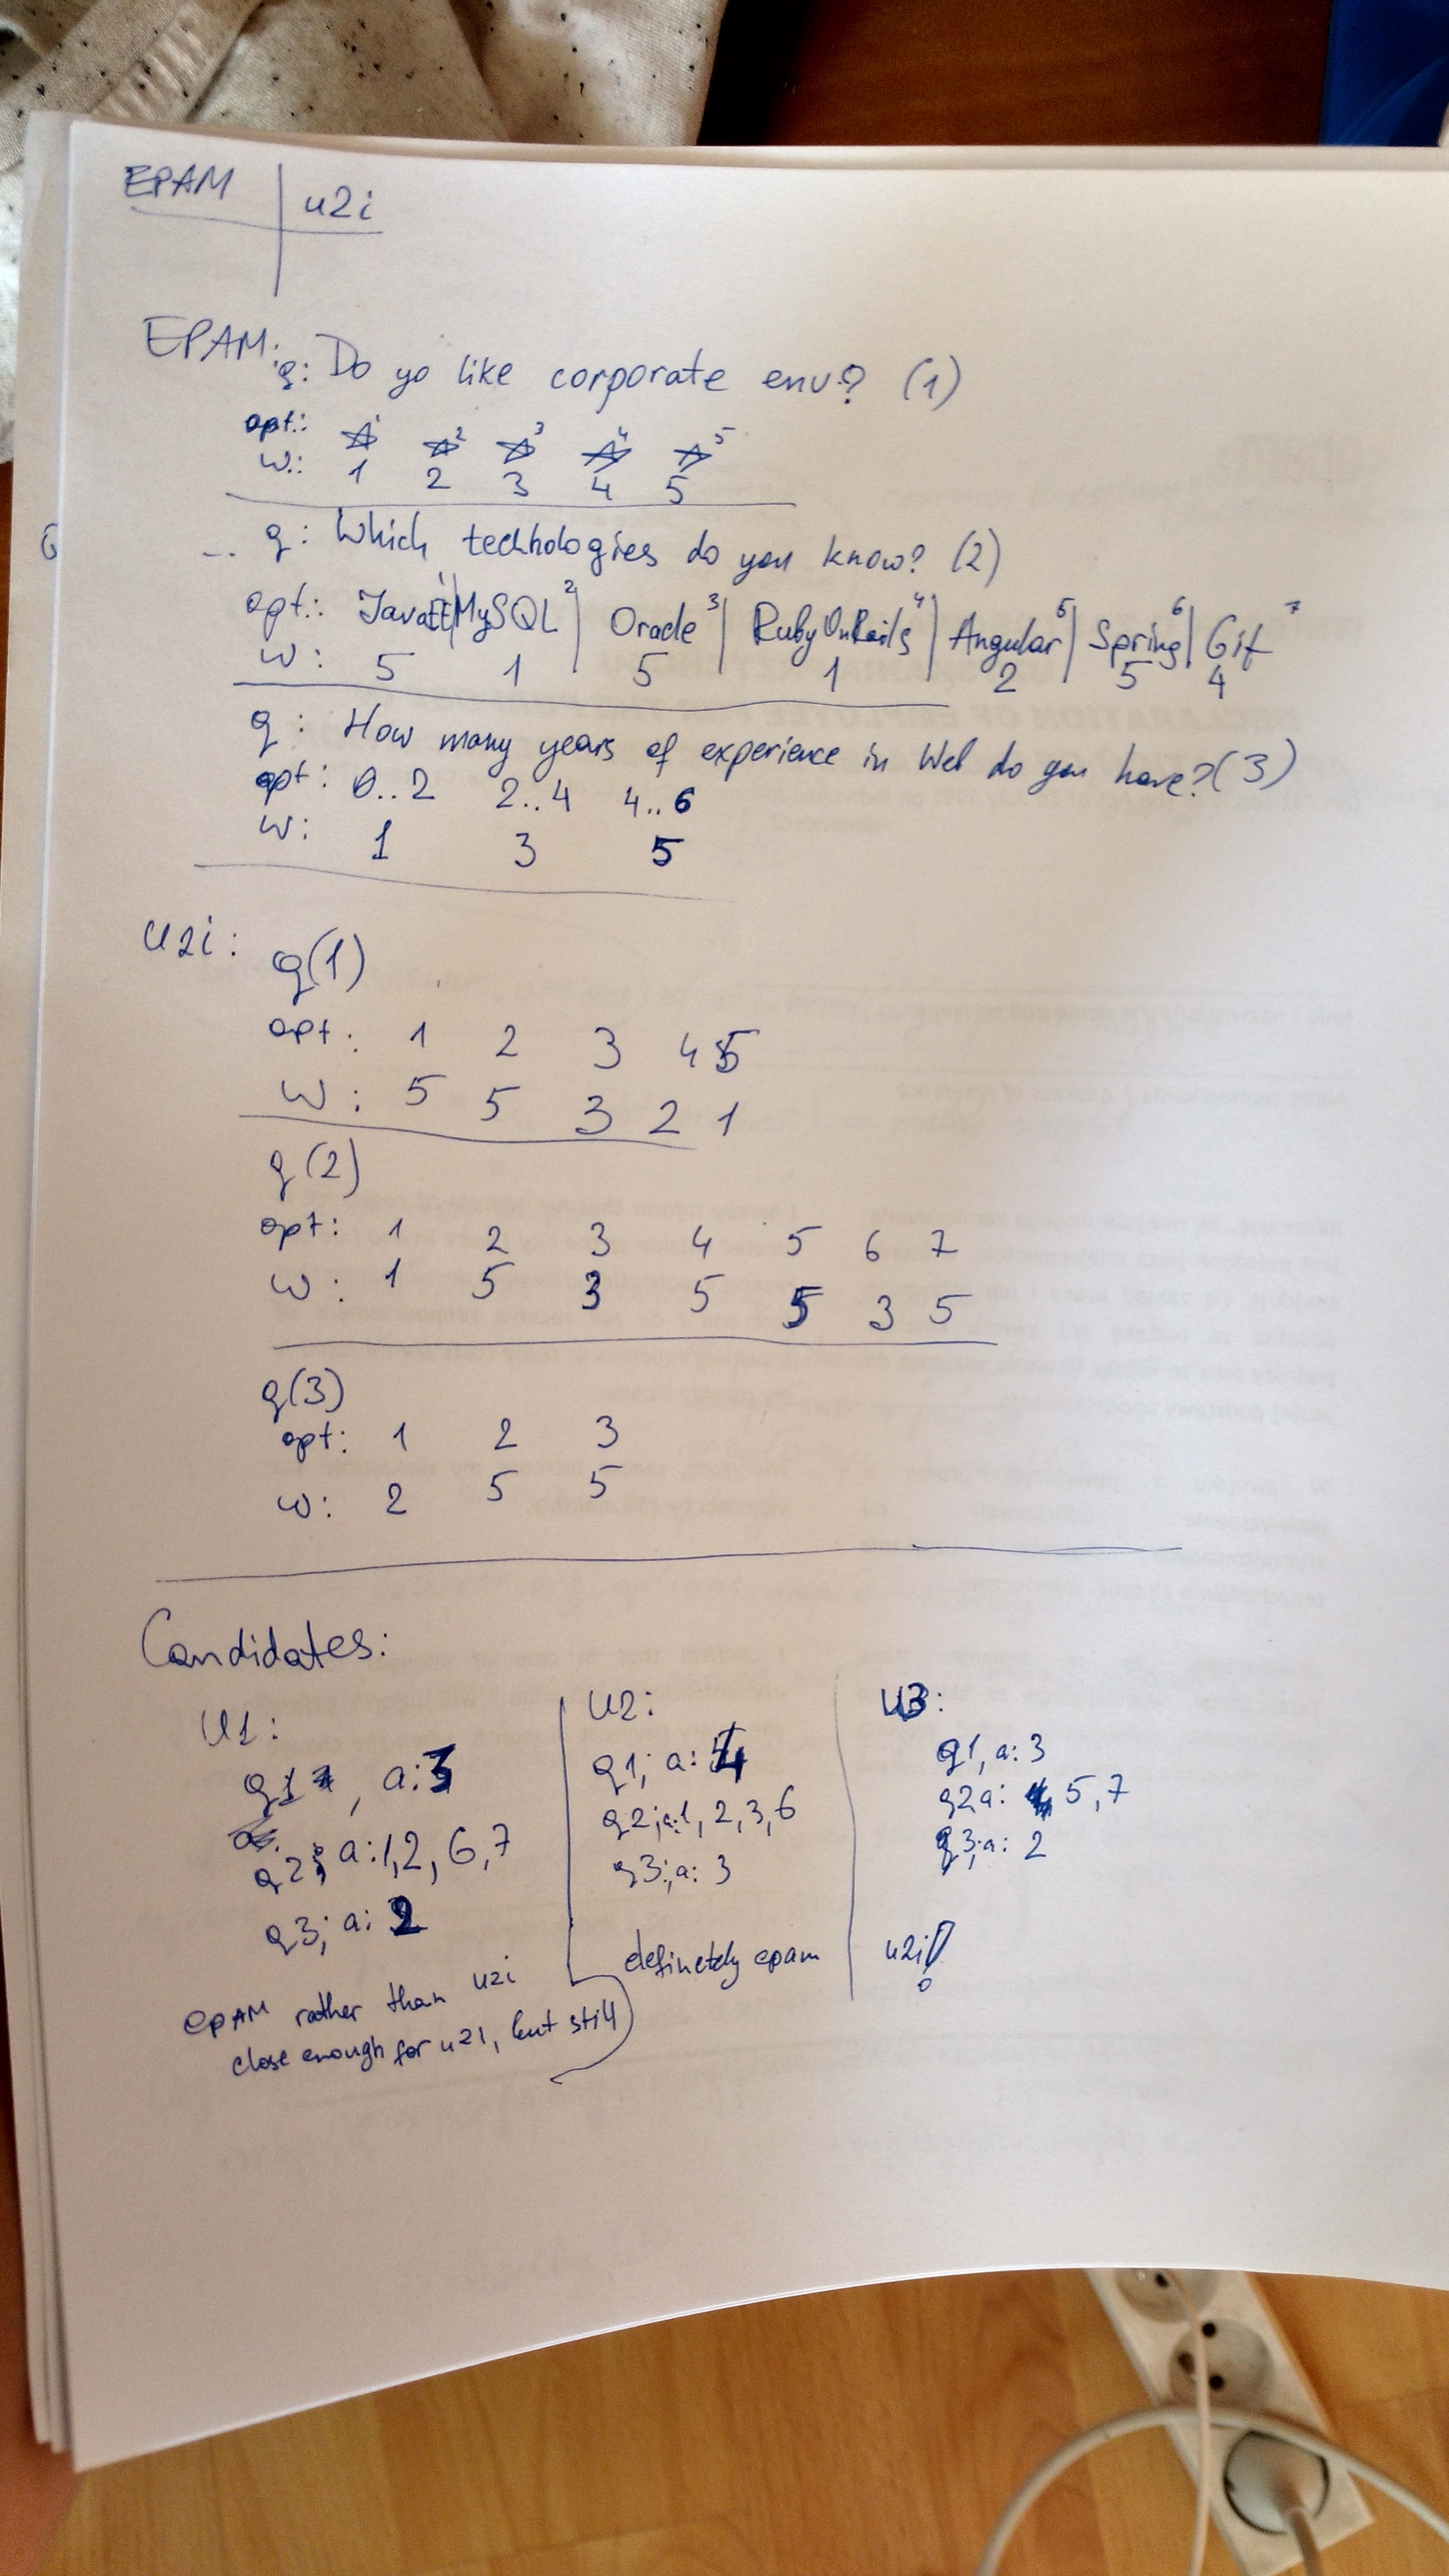 EPAM | u2i
EPAM:
q: Do yo like corporate env? (1)
opt.: ☆1 ☆2 ☆3 ☆4 ☆5
w.: 1 2 3 4 5
... q: Which technologies do you know? (2)
opt.: JavaEE 1 | MySQL 2 | Oracle 3 | RubyOnRails 4 | Angular 5 | Spring 6 | Git 7
w: 5 1 5 1 2 5 4
q: How many years of experience in Web do you have? (3)
opt: 0..2 2..4 4..6
w: 1 3 5
u2i:
q(1)
opt: 1 2 3 4 5
w: 5 5 3 2 1
q(2)
opt: 1 2 3 4 5 6 7
w: 1 5 3 5 5 3 5
q(3)
opt: 1 2 3
w: 2 5 5
Candidates:
U1:
q1, a: 3
q2; a: 1, 2, 6, 7
q3; a: 2
EPAM rather than u2i
close enough for u2i, but still
U2:
q1; a: 4
q2; a: 1, 2, 3, 6
q3; a: 3
definetely epam
U3:
q1, a: 3
q2 a: 5, 7
q3; a: 2
u2i!